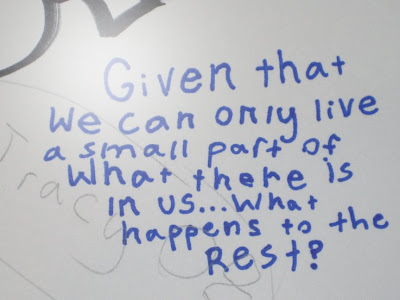 Given that
we can only live
a small part of
what there is
in us...what
happens to the
Rest?
Tracy